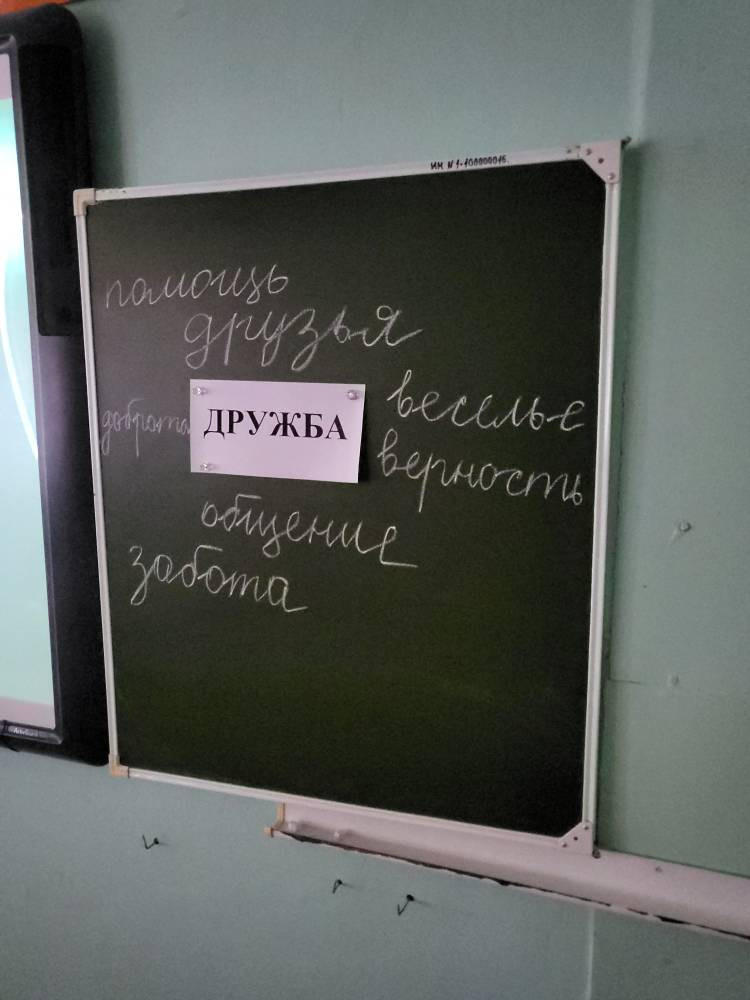 ИН №1-100000015.
помощь
друзья
доброта
ДРУЖБА
веселье
верность
общение
забота